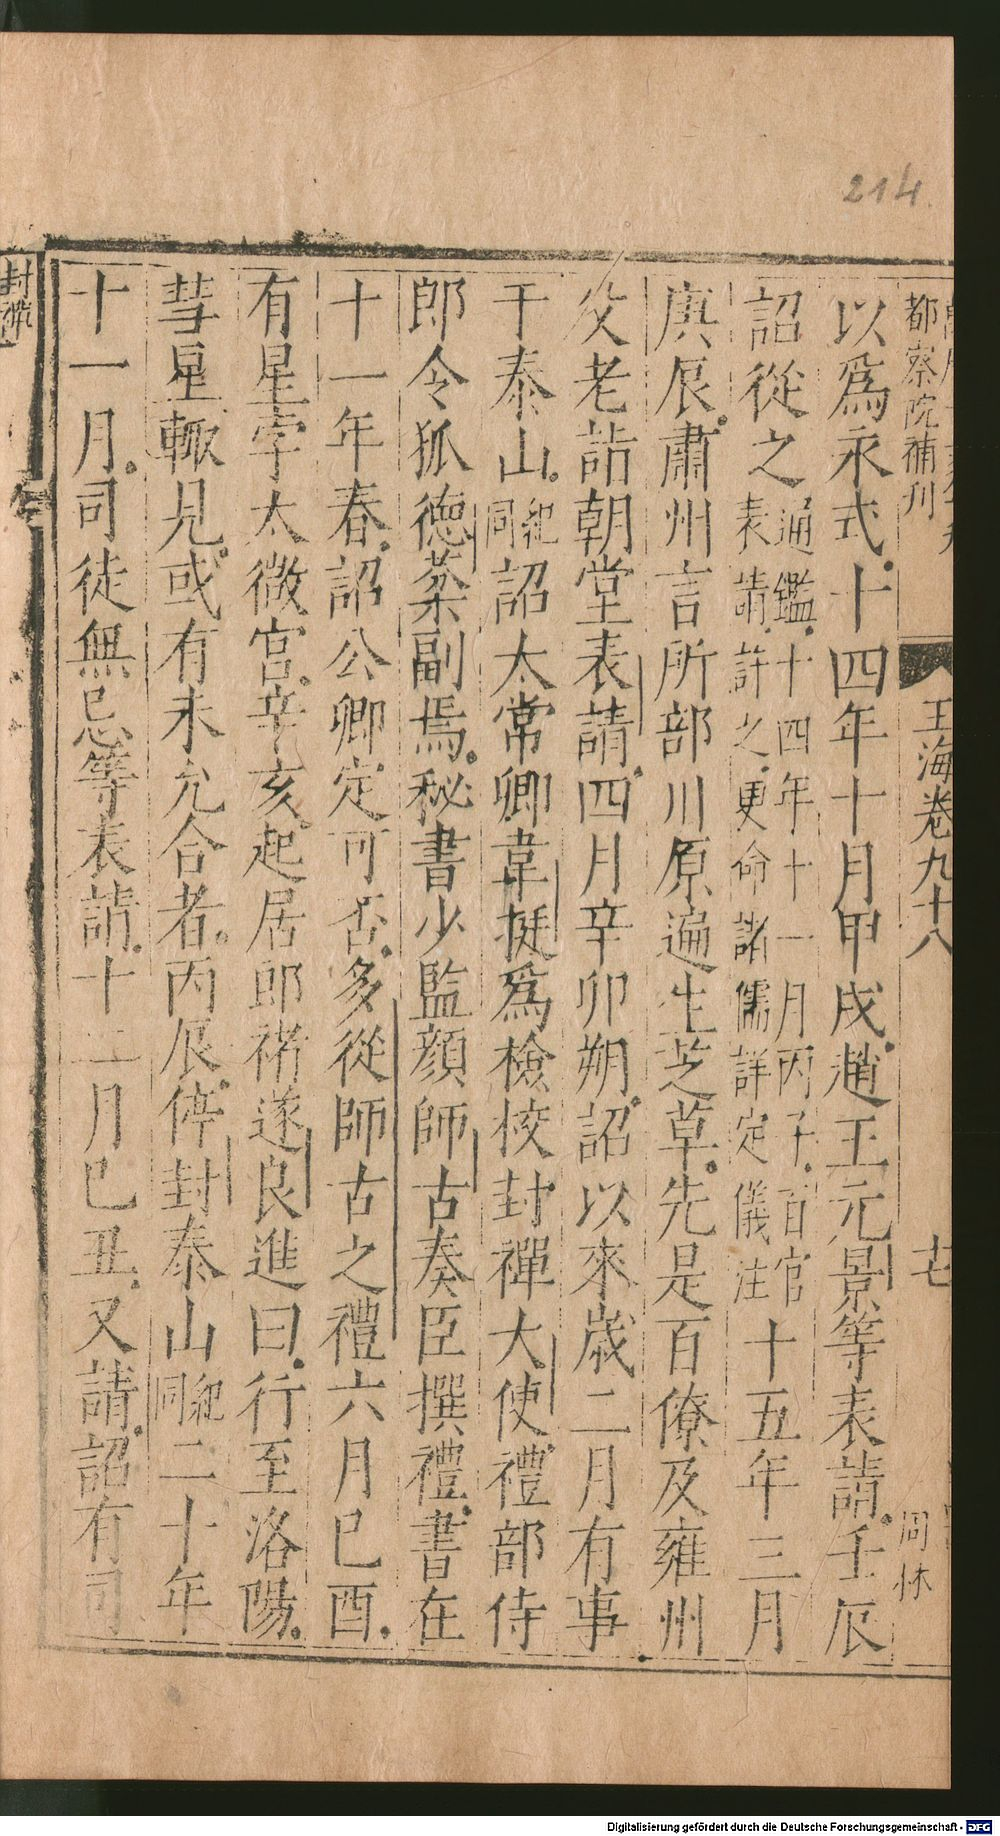 214
都察院補刊
玉海卷九十八
周林
以爲永式十四年十月甲戌趙王元景等表請壬辰
詔從之通鑑十四年十一月丙子百官表請許之更命諸儒詳定儀注十五年三月
庚辰肅州言所部川原遍生芝草先是百僚及雍州
父老詣朝堂表請四月辛卯朔詔以來歲二月有事
于泰山紀同詔太常卿韋挺爲檢校封禪大使禮部侍
郎令狐德棻副焉秘書少監顏師古奏臣撰禮書在
十一年春詔公卿定可否多從師古之禮六月己酉
有星孛太微宮辛亥起居郎褚遂良進曰行至洛陽
彗星輒見或有未允合者丙辰停封泰山紀同二十年
十一月司徒無忌等表請十二月己丑又請詔有司
封禪
Digitalisierung gefördert durch die Deutsche Forschungsgemeinschaft - DFG